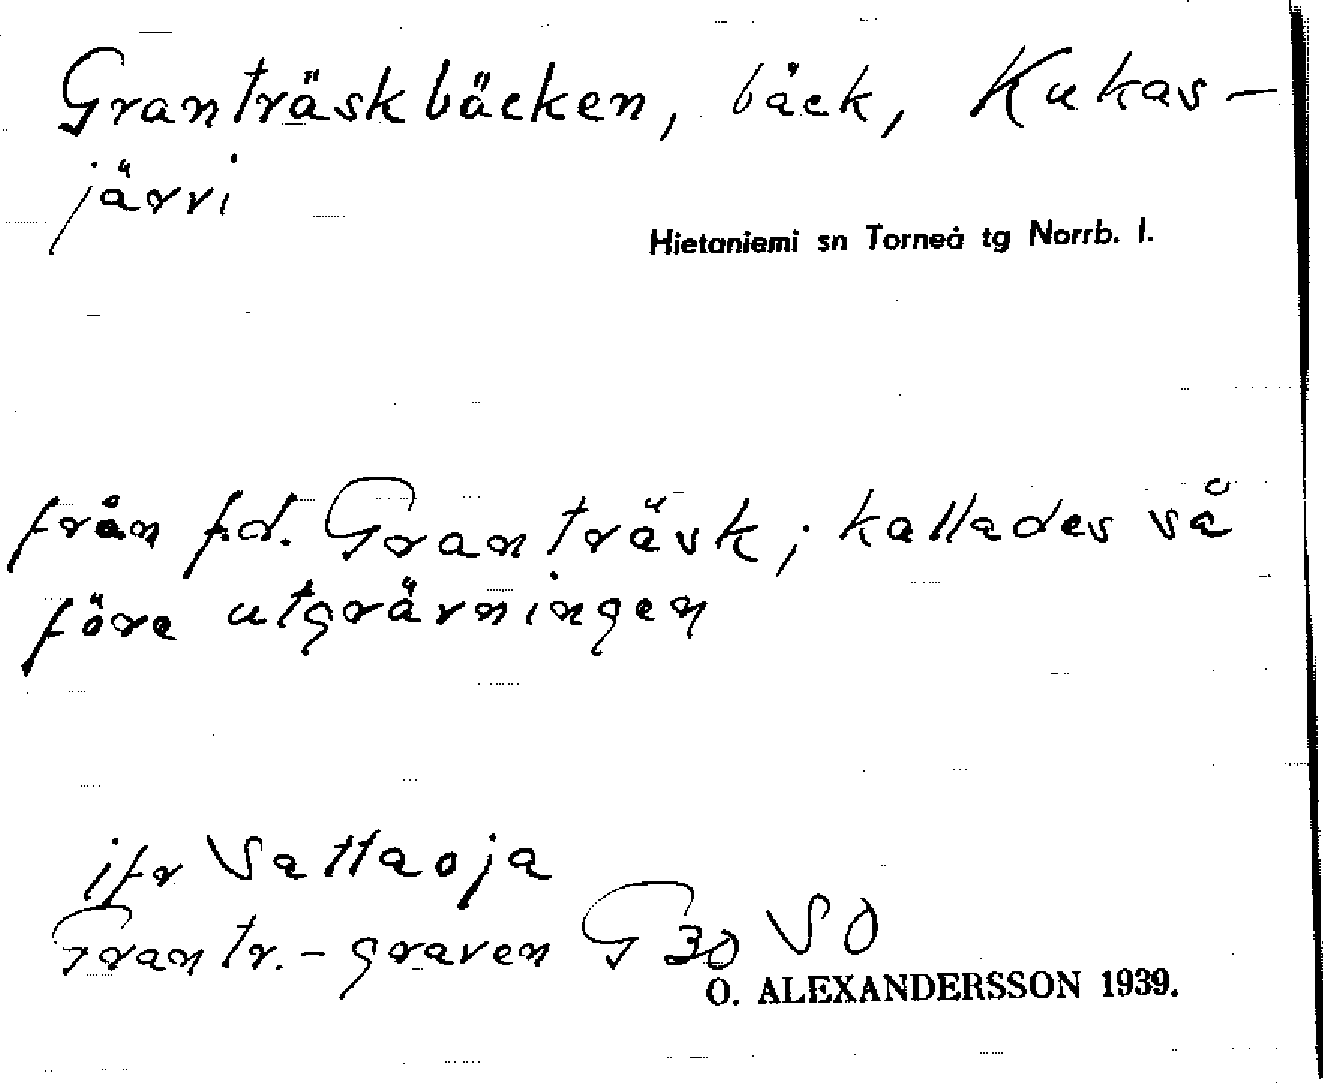 Granträskbäcken, bäck, Kukas-
järvi
Hietaniemi sn Torneå tg Norrb. l.
från f.d. Granträsk; kallades så
före utgrävningen
jfr Vattaoja
Grantr.-graven G 30 SO
O. ALEXANDERSSON 1939.